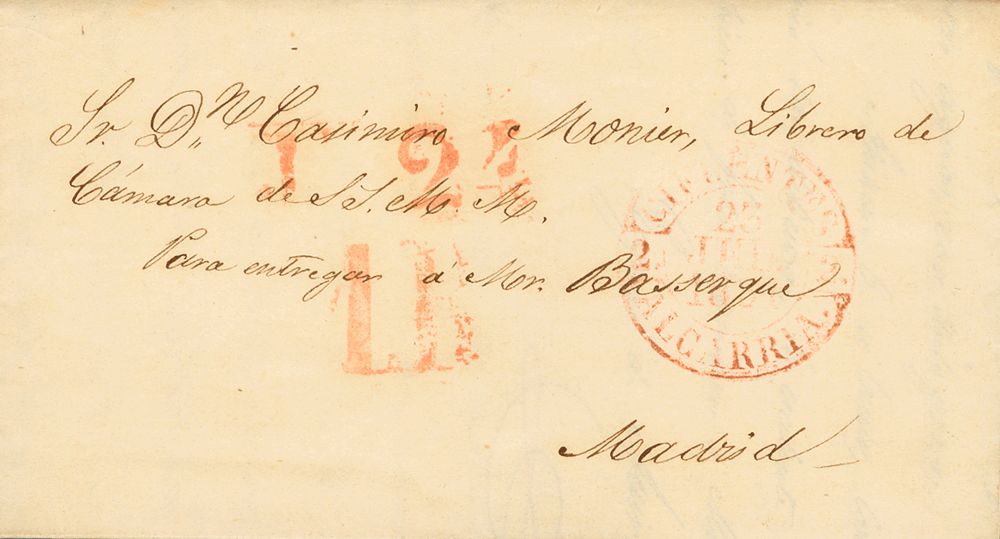 Sr. Dn. Casimiro Monier, Librero de
Cámara de S S. M. M.
Para entregar á Mor. Basserque
Madrid
CIFUENTES
23
JUL
ALCARRIA.